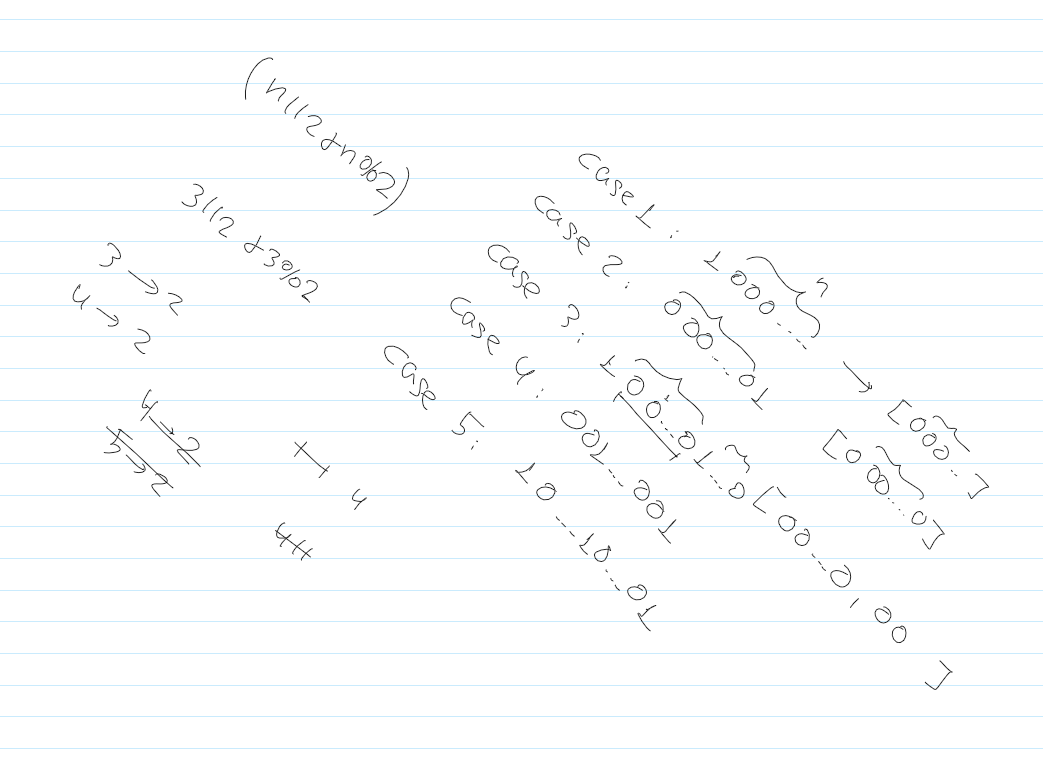 (n//2+n%2)
3//2 +3%2
3 → 2
4 → 2
4 → 2
5 → 2
4
case 1 : 1 000... → [000...]
case 2 : 000...01 [000...0]
case 3 : 100...01...0 [00...0,00]
case 4 : 00100...001
case 5 : 10...10...01